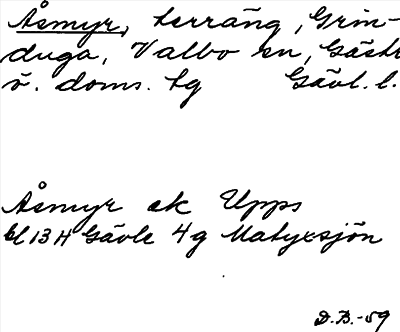 Åsmyr, terräng, Grin-
duga, Valbo sn, Gästr
ö. doms. tg Gävl. l.
Åsmyr ek Upps
bl 13 H Gävle 4g Matyxsjön
D.B.-59